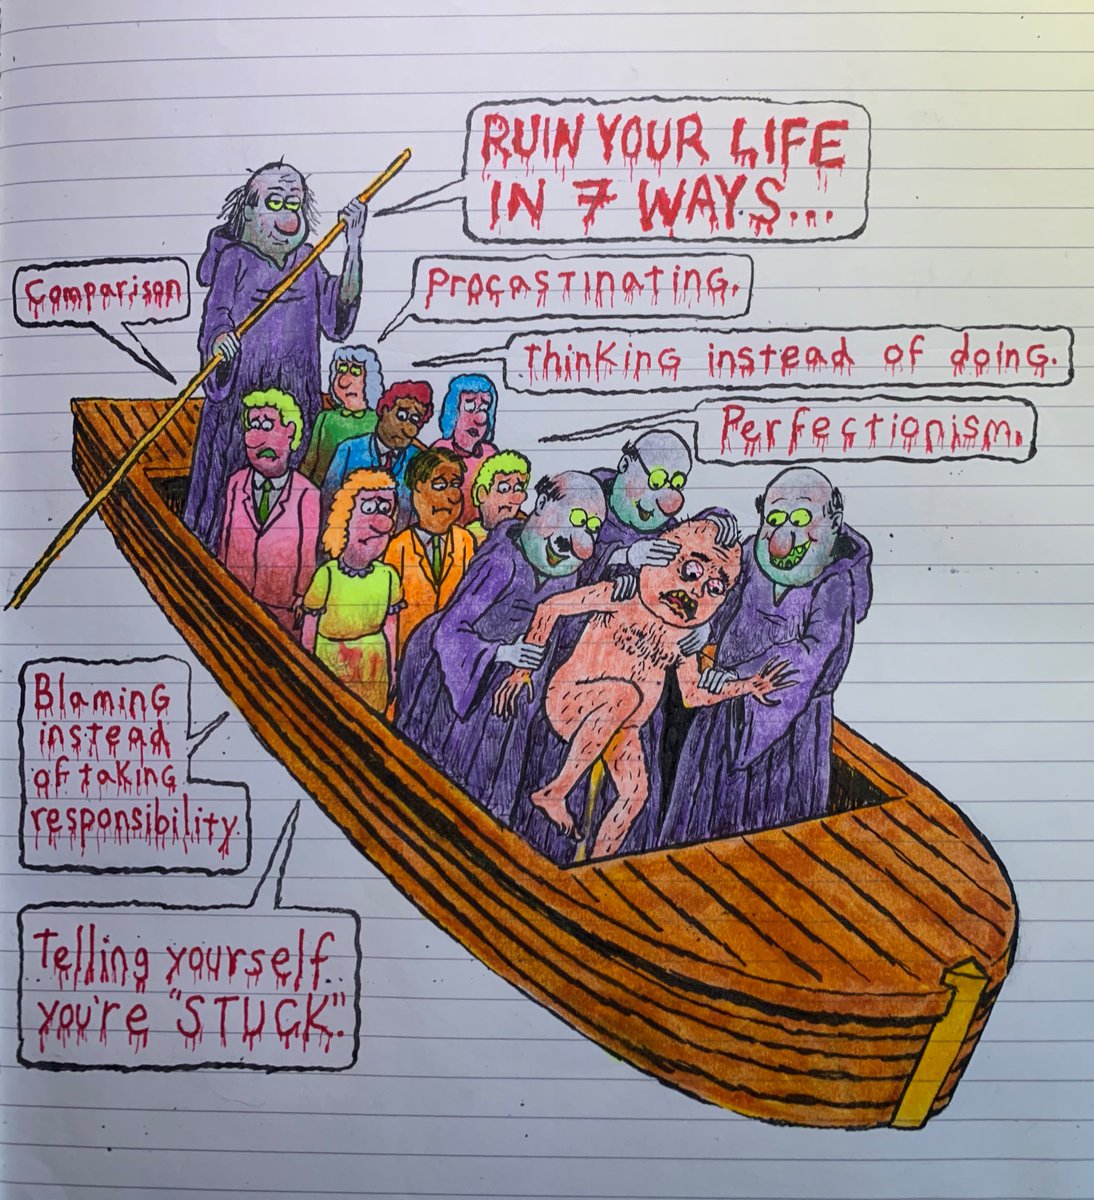 RUIN YOUR LIFE
IN 7 WAYS...
Comparison
Procastinating.
Thinking instead of doing.
Perfectionism.
Blaming
instead
of taking
responsibility.
Telling yourself
you're "STUCK".